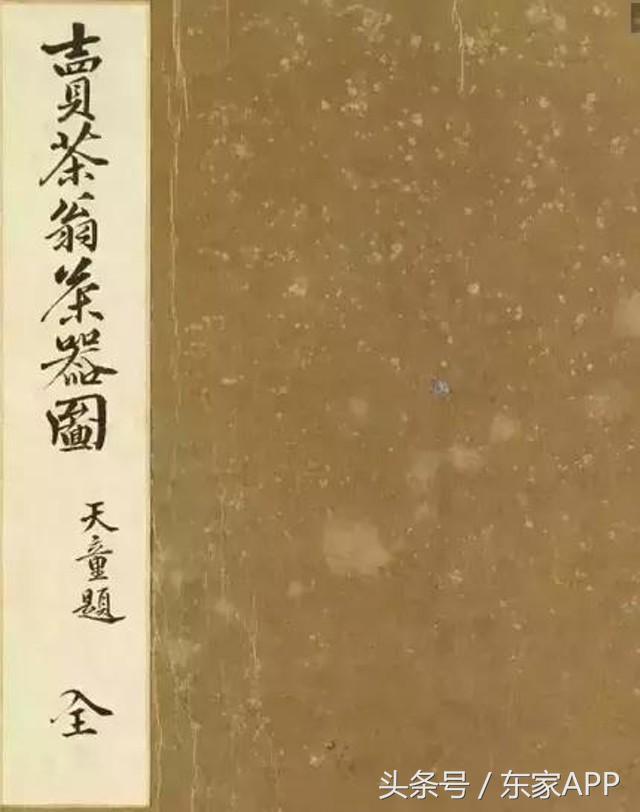 賣茶翁茶器圖
天童題
全
头条号 / 东家APP